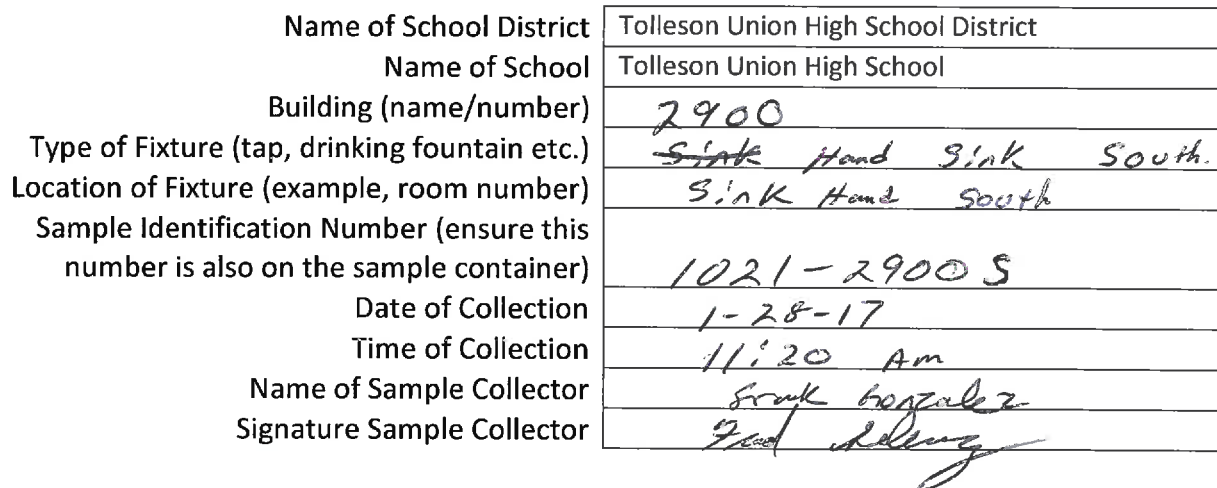 Name of School District Tolleson Union High School District
Name of School Tolleson Union High School
Building (name/number) 2900
Type of Fixture (tap, drinking fountain etc.) Sink Hand Sink South.
Location of Fixture (example, room number) Sink Hand South
Sample Identification Number (ensure this
number is also on the sample container) 1021-2900 S
Date of Collection 1-28-17
Time of Collection 11:20 Am
Name of Sample Collector Frank Gonzalez
Signature Sample Collector